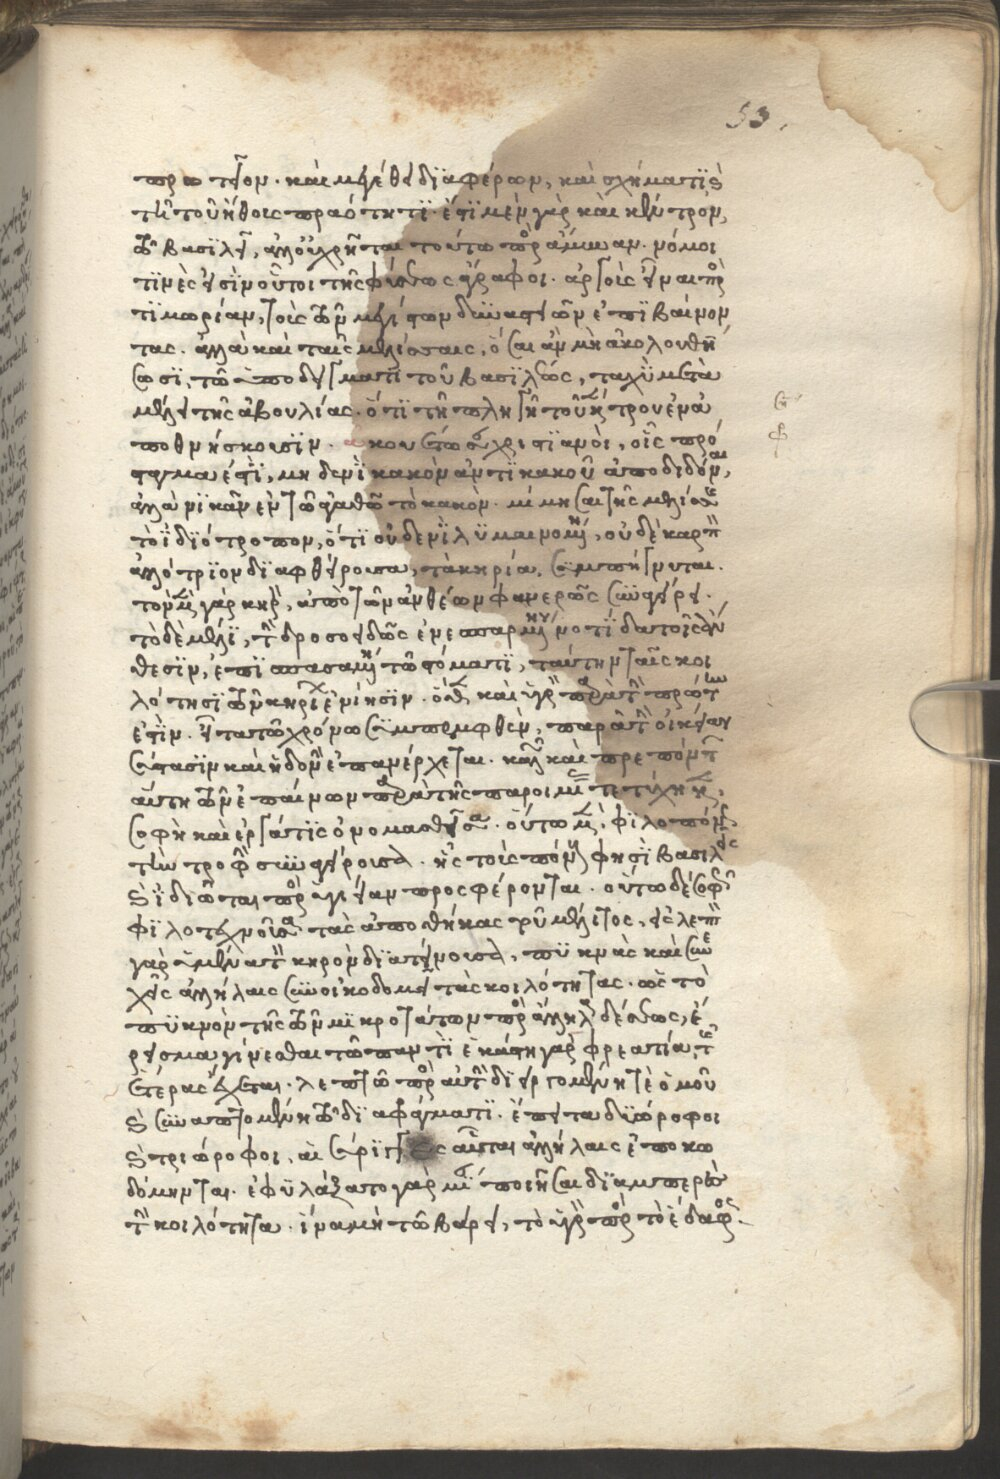 πρωτεῖον· καὶ μεγέθει διαφέρων, καὶ σχήματι καὶ
τῇ τοῦ ἤθους πραότητι· ἔστι μὲν γὰρ καὶ κέντρον,
τῷ βασιλεῖ, ἀλλ' οὐ χρῆται τούτω πρὸς ἄμυναν· νόμοι
τινὲς εἰσὶν οὗτοι τῆς φύσεως ἄγραφοι· ἀργοὺς εἶναι πρὸς
τιμωρίαν, τοὺς τῶν μεγίστων δυναστειῶν ἐπιβαίνον
τας· ἀλλὰ καὶ ταῖς μελίσσαις, ὅσαι ἂν μὴ ἀκολουθή
σωσι, τῶ ὑποδείγματι τοῦ βασιλέως, ταχὺ μετα
μέλει τῆς ἀβουλίας· ὅτι τῇ πληγῇ τοῦ κέντρου ἐνα
ποθνήσκουσιν· ἀκουέτωσαν χριστιανοὶ, οἷς πρό
σταγμα ἐστὶ, μηδενὶ κακὸν ἀντὶ κακοῦ ἀποδιδόναι,
ἀλλὰ νικᾶν ἐν τῶ ἀγαθῶ τὸ κακὸν· μίμησαι τῆς μελίσσης
τὸ ἰδιότροπον, ὅτι οὐδενὶ λυμαινομένη, οὐδὲ καρπὸν
ἀλλότριον διαφθείρουσα, τὰ κηρία, συμπήγνυται·
τὸν μὲν γὰρ κηρὸν, ἀπὸ τῶν ἀνθέων φανερῶς συναγείρει·
τὸ δὲ μέλι, τὴν δροσοειδῶς ἐνεσπαρμένην νοτίδα τοῖς ἄν
θεσιν, ἐπισπασαμένη τῶ στόματι, ταύτην ταῖς κοι
λότησι τῶν κηρίων ἐνίησιν· ὅθεν καὶ ὑγρὸν παρὰ τὴν πρώτην
ἐστὶν· εἶτα τῶ χρόνω συμπεμφθὲν, παρὰ τὴν οἰκείαν
σύστασιν καὶ ἡδονὴν ἐπανέρχεται· καλῶν καὶ πρεπόντων
αὕτη τῶν ἐπαίνων παρὰ τῆς παροιμίας τετύχηκεν·
σοφὴ καὶ ἐργάτις ὀνομασθεῖσα· οὕτω μὲν, φιλοπόνως
τὴν τροφὴν συναγείρουσα· ἧς τοὺς πόνους φησὶ βασιλεῖς
καὶ ἰδιῶται πρὸς ὑγείαν προσφέρονται· οὕτω δὲ σοφῶς
φιλοτεχνοῦσα τὰς ἀποθήκας τοῦ μέλιτος, εἰς λεπτὸν
γὰρ ὑμένα τὸν κηρὸν διατείνουσα, πυκνὰς καὶ συνε
χεῖς ἀλλήλαις συνοικοδομεῖ τὰς κοιλότητας· ὡς τὸ
πυκνὸν τῆς τῶν μικροτάτων πρὸς ἄλληλα δέσεως, ἔ
ρεισμα γίνεσθαι τῶ παντὶ ἑκάστη γὰρ φρεατία, τῆς
ἑτέρας ἔχεται· λεπτῶ πρὸς αὐτὴν διειργομένη τὲ ὁμοῦ
καὶ συναπτομένη τῷ διαφράγματι· ἔπειτα διώροφοι
καὶ τριώροφοι, αἱ σύριγγες αὗται ἀλλήλαις ἐπωκο
δόμηνται· ἐφυλάξατο γὰρ μίαν ποιῆσαι διαμπερὲς
τὴν κοιλότητα· ἵνα μὴ τῶ βάρει, τὸ ὑγρὸν πρὸς τὸ ἔδαφος
53.